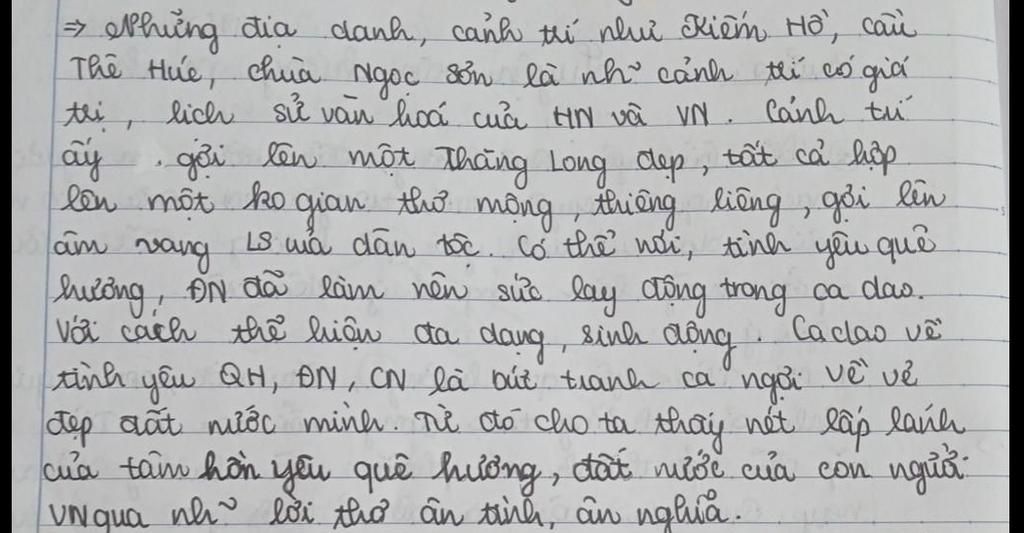 ⇒ Những địa danh, cảnh trí như Kiếm Hồ, cầu
Thê Húc, chùa Ngọc Sơn là nhữ cảnh trí có giá
trị, lịch sử văn hoá của HN và VN. Cảnh trí
ấy . gợi lên một Thăng Long đẹp, tất cả hợp
lên một ko gian thơ mộng, thiêng liêng, gợi lên
âm vang LS của dân tộc. Có thể nói, tình yêu quê
hương, ĐN đã làm nên sức lay động trong ca dao.
Với cách thể hiện đa dạng, sinh động. Ca dao về
tình yêu QH, ĐN, CN là bức tranh ca ngợi về vẻ
đẹp đất nước mình Từ đó cho ta thấy nét lấp lánh
của tâm hồn yêu quê hương, đất nước của con người
VN qua nhữ lời thơ ân tình, ân nghĩa.